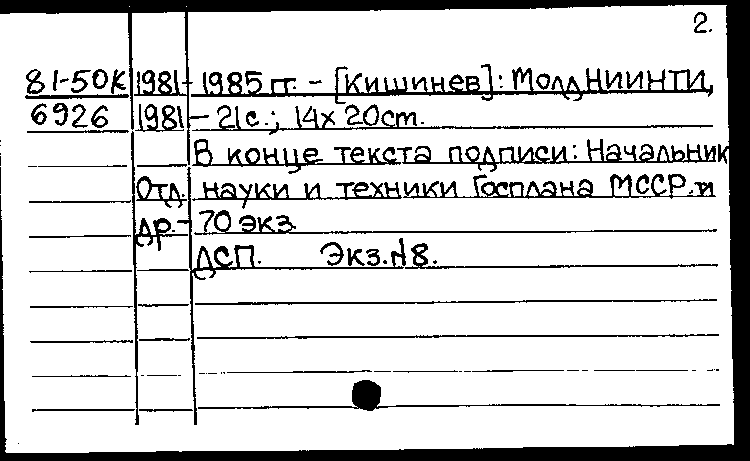 2.
81-50К 1981-1985 гг. - [Кишинев]: МолдНИИНТИ,
6926 1981 - 21с.; 14х20см.
В конце текста подписи: Начальник
Отд. науки и техники Госплана МССР и
др. - 70 экз.
ДСП. Экз.№8.